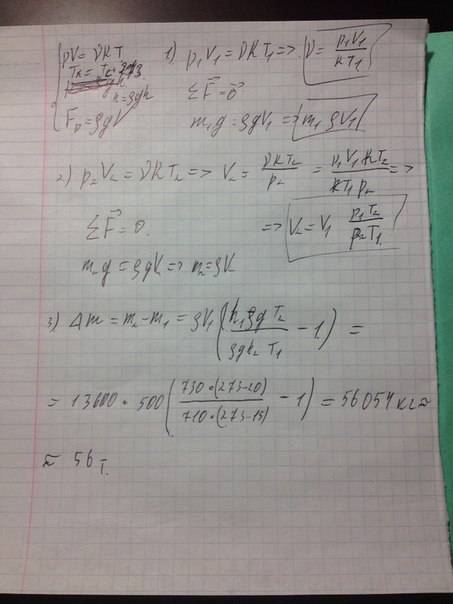 pV = νRT
F_A = ρgV
1) p₁V₁ = νRT₁ => ν = p₁V₁ / RT₁
ΣF⃗ = 0⃗
m₁g = ρgV₁ => m₁ = ρV₁
2) p₂V₂ = νRT₂ => V₂ = νRT₂ / p₂ = p₁V₁RT₂ / RT₁p₂ =>
ΣF⃗ = 0. => V₂ = V₁ p₁T₂ / p₂T₁
m₂g = ρgV₂ => m₂ = ρV₂
3) Δm = m₂ - m₁ = ρV₁ (h₁ρgT₂ / ρgh₂T₁ - 1) =
= 13600 · 500 (730·(273-20) / 710·(273-15) - 1) = 56054 кг ≈
≈ 56 т.